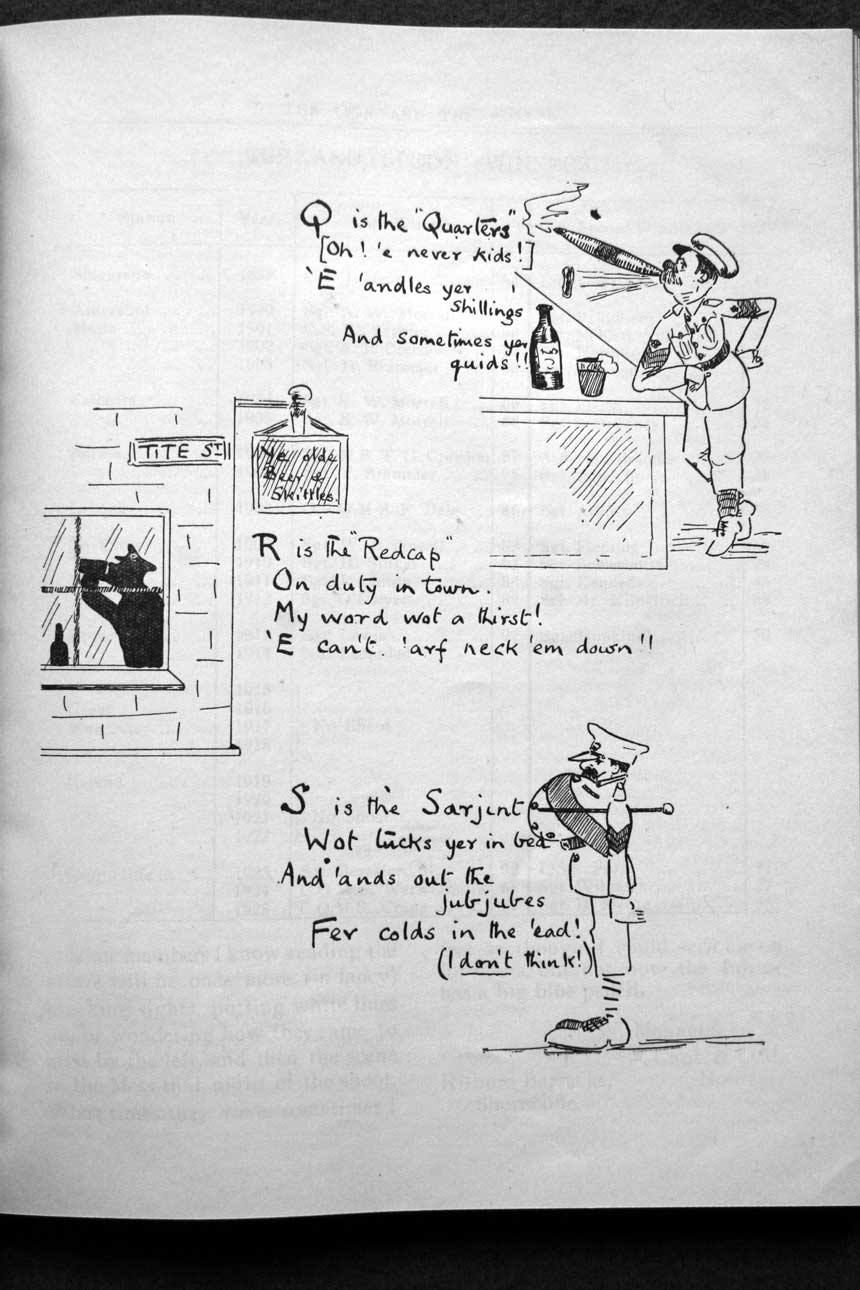 Q is the "Quarters"
[Oh! 'e never kids!]
'E 'andles yer
shillings
And sometimes yer
quids!!
TITE ST
Ye olde
Beer &
Skittles.
R is the "Redcap"
On duty in town.
My word wot a thirst!
'E can't 'arf neck em down"!
S is the Sarjint
Wot tucks yer in bed
And 'ands out the
jubjubes
Fer colds in the 'ead!
(I don't think!)